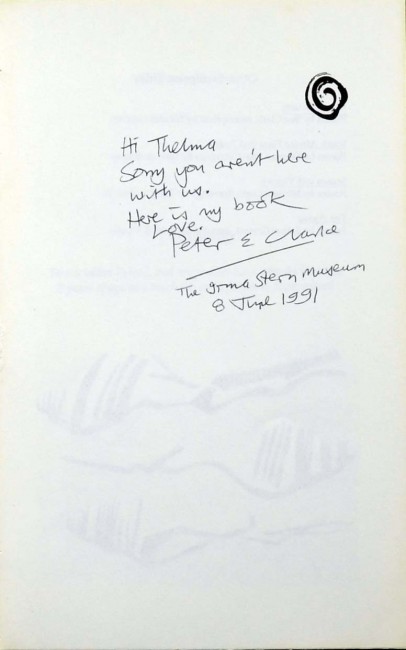 Hi Thelma
Sorry you aren't here
with us.
Here is my book
Love.
Peter E Clarke
The Irma Stern Museum
8 June 1991